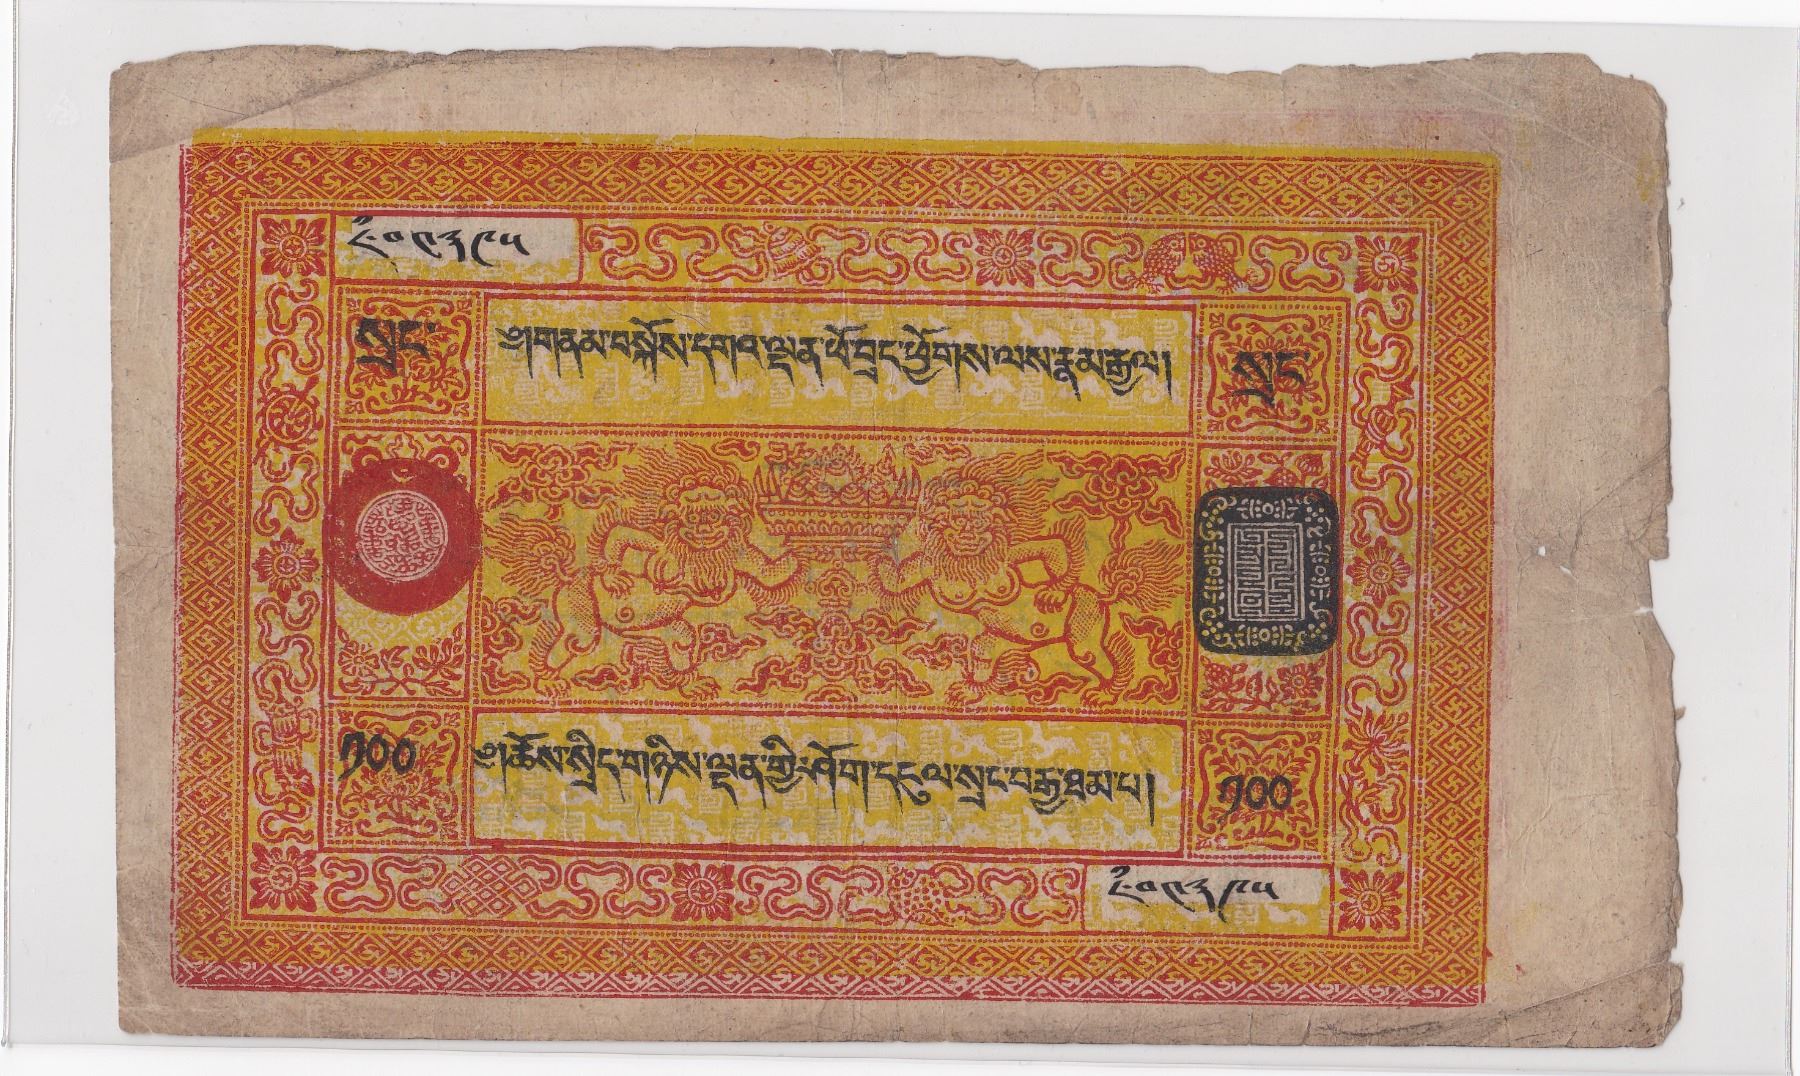 སྲང་
༄གནམ་བསྐོས་དགའ་ལྡན་ཕོ་བྲང་ཕྱོགས་ལས་རྣམ་རྒྱལ།
སྲང་
༡༠༠
༄ཆོས་སྲིད་གཉིས་ལྡན་གྱི་ཤོག་དངུལ་སྲང་བརྒྱ་ཐམ་པ།
༡༠༠